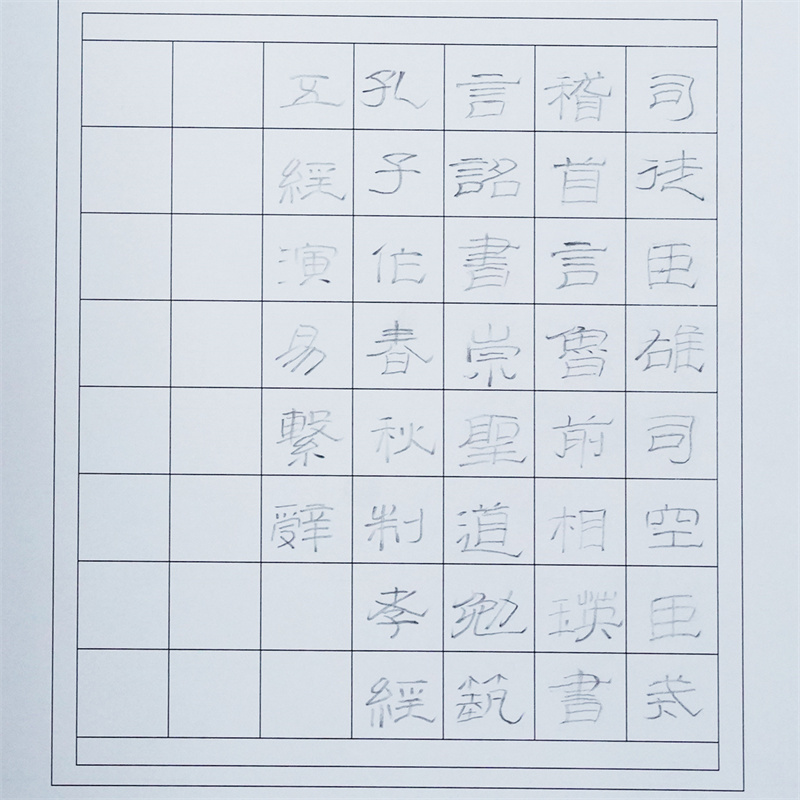 司徒臣雄司空臣戒
稽首言魯前相瑛書
言詔書崇聖道勉蓺
孔子作春秋制孝經
五經演易繫辭